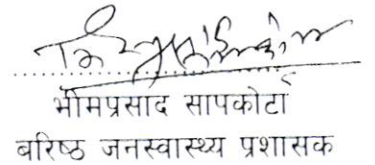 भीमप्रसाद सापकोटा
बरिष्ठ जनस्वास्थ्य प्रशासक